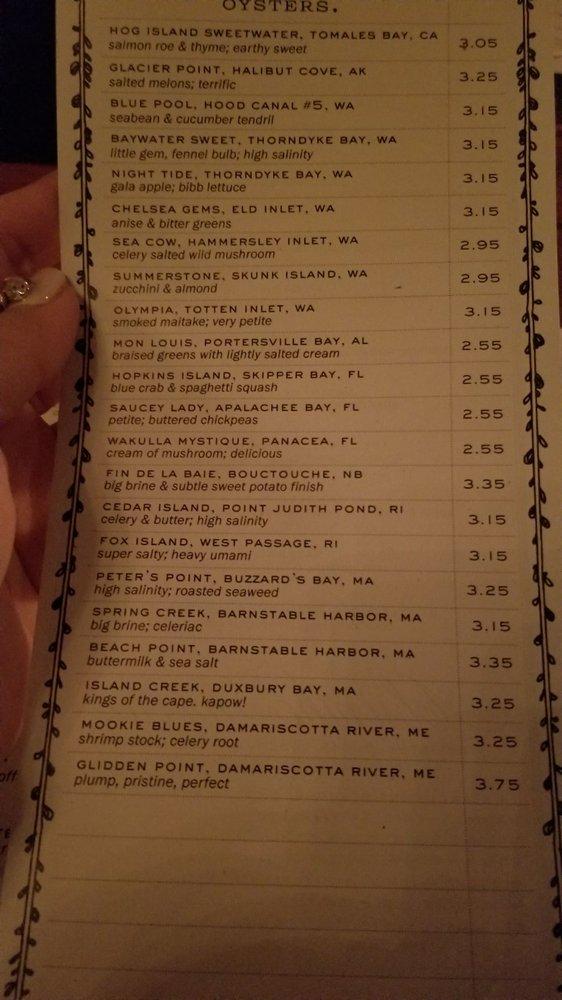 OYSTERS.
HOG ISLAND SWEETWATER, TOMALES BAY, CA 3.05
salmon roe & thyme; earthy sweet
GLACIER POINT, HALIBUT COVE, AK 3.25
salted melons; terrific
BLUE POOL, HOOD CANAL #5, WA 3.15
seabean & cucumber tendril
BAYWATER SWEET, THORNDYKE BAY, WA 3.15
little gem, fennel bulb; high salinity
NIGHT TIDE, THORNDYKE BAY, WA 3.15
gala apple; bibb lettuce
CHELSEA GEMS, ELD INLET, WA 3.15
anise & bitter greens
SEA COW, HAMMERSLEY INLET, WA 2.95
celery salted wild mushroom
SUMMERSTONE, SKUNK ISLAND, WA 2.95
zucchini & almond
OLYMPIA, TOTTEN INLET, WA 3.15
smoked maitake; very petite
MON LOUIS, PORTERSVILLE BAY, AL 2.55
braised greens with lightly salted cream
HOPKINS ISLAND, SKIPPER BAY, FL 2.55
blue crab & spaghetti squash
SAUCEY LADY, APALACHEE BAY, FL 2.55
petite; buttered chickpeas
WAKULLA MYSTIQUE, PANACEA, FL 2.55
cream of mushroom; delicious
FIN DE LA BAIE, BOUCTOUCHE, NB 3.35
big brine & subtle sweet potato finish
CEDAR ISLAND, POINT JUDITH POND, RI 3.15
celery & butter; high salinity
FOX ISLAND, WEST PASSAGE, RI 3.15
super salty; heavy umami
PETER'S POINT, BUZZARD'S BAY, MA 3.25
high salinity; roasted seaweed
SPRING CREEK, BARNSTABLE HARBOR, MA 3.15
big brine; celeriac
BEACH POINT, BARNSTABLE HARBOR, MA 3.35
buttermilk & sea salt
ISLAND CREEK, DUXBURY BAY, MA 3.25
kings of the cape. kapow!
MOOKIE BLUES, DAMARISCOTTA RIVER, ME 3.25
shrimp stock; celery root
GLIDDEN POINT, DAMARISCOTTA RIVER, ME 3.75
plump, pristine, perfect